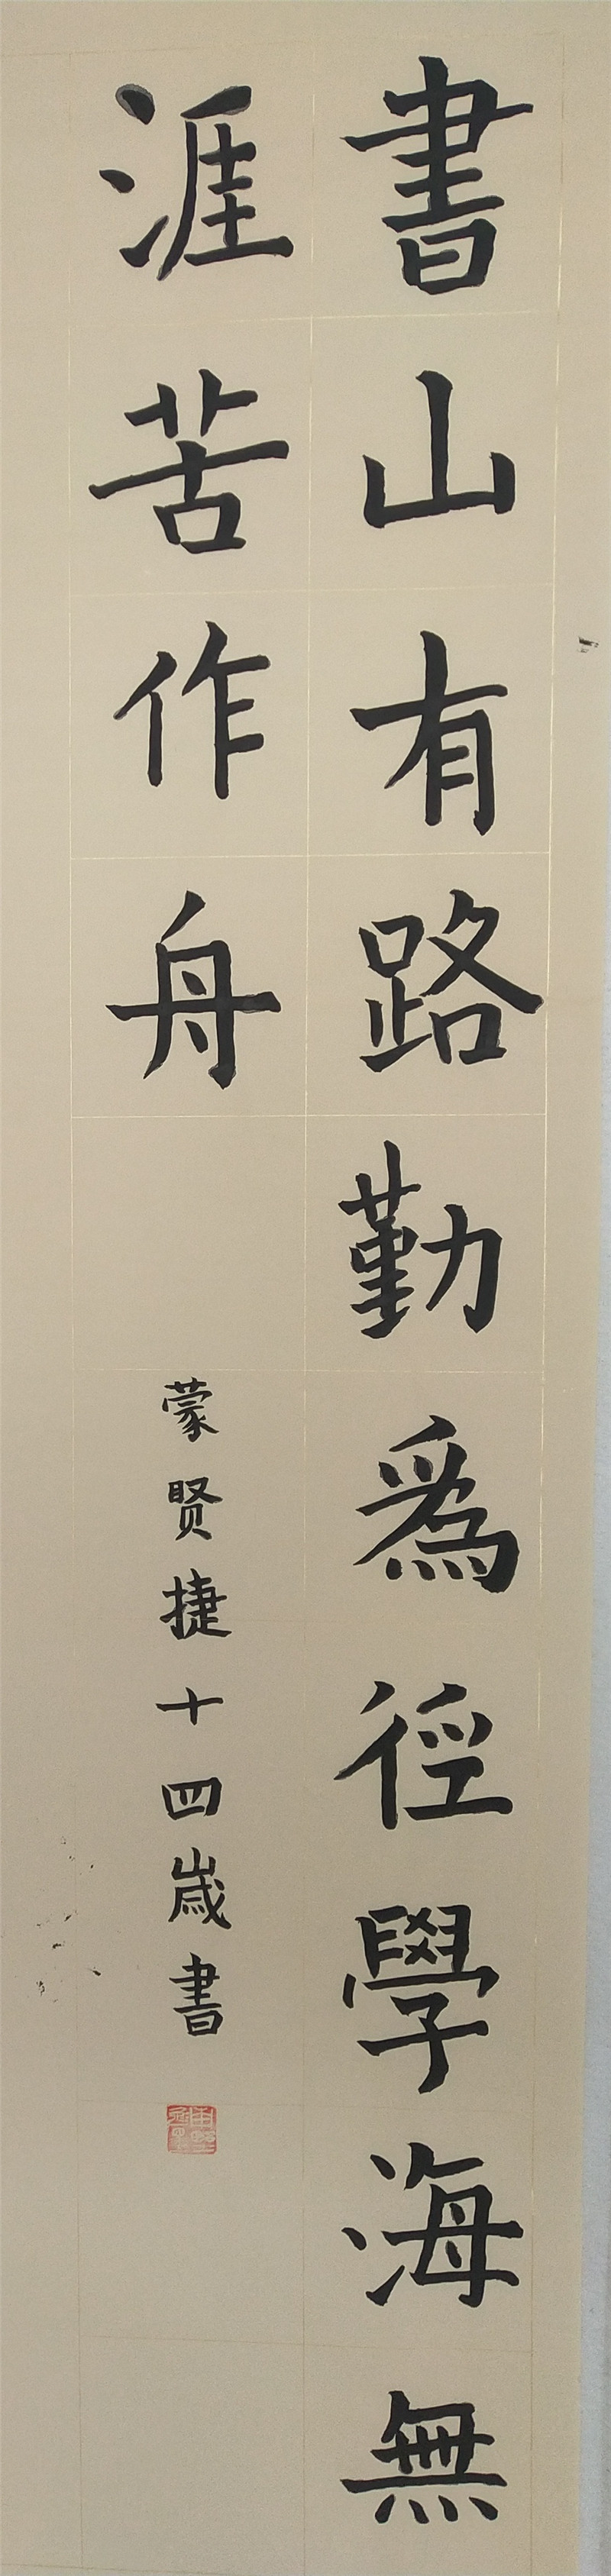 書山有路勤為徑學海無
涯苦作舟
蒙贤捷十四歲書